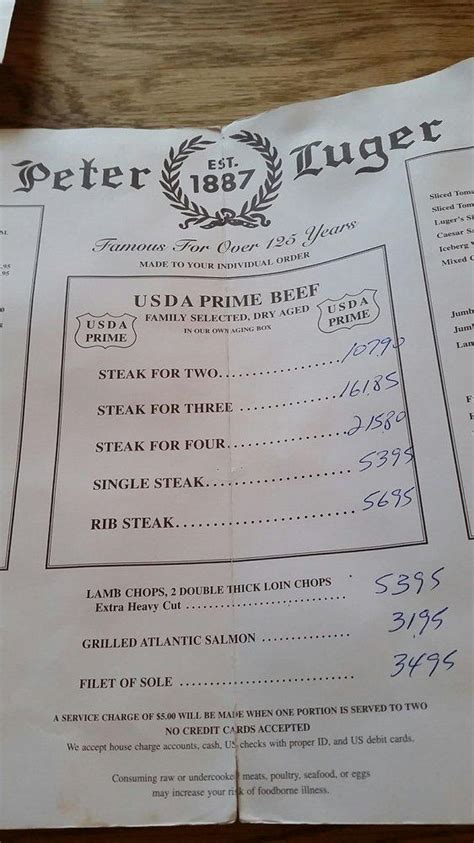 Peter Luger
EST.
1887
Famous For Over 125 Years
MADE TO YOUR INDIVIDUAL ORDER
USDA PRIME BEEF
FAMILY SELECTED, DRY AGED
IN OUR OWN AGING BOX
USDA
PRIME
USDA
PRIME
STEAK FOR TWO.................... 107.90
STEAK FOR THREE ................ 161.85
STEAK FOR FOUR.................. 215.80
SINGLE STEAK...................... 5395
RIB STEAK.......................... 5695
LAMB CHOPS, 2 DOUBLE THICK LOIN CHOPS
Extra Heavy Cut .............................. 5395
GRILLED ATLANTIC SALMON ................ 3195
FILET OF SOLE ................................ 3495
A SERVICE CHARGE OF $5.00 WILL BE MADE WHEN ONE PORTION IS SERVED TO TWO
NO CREDIT CARDS ACCEPTED
We accept house charge accounts, cash, US checks with proper ID, and US debit cards.
Consuming raw or undercooked meats, poultry, seafood, or eggs
may increase your risk of foodborne illness.
.95
.95
Sliced Toma
Sliced Toma
Luger's S
Caesar Sa
Iceberg
Mixed
Jumb
Jumb